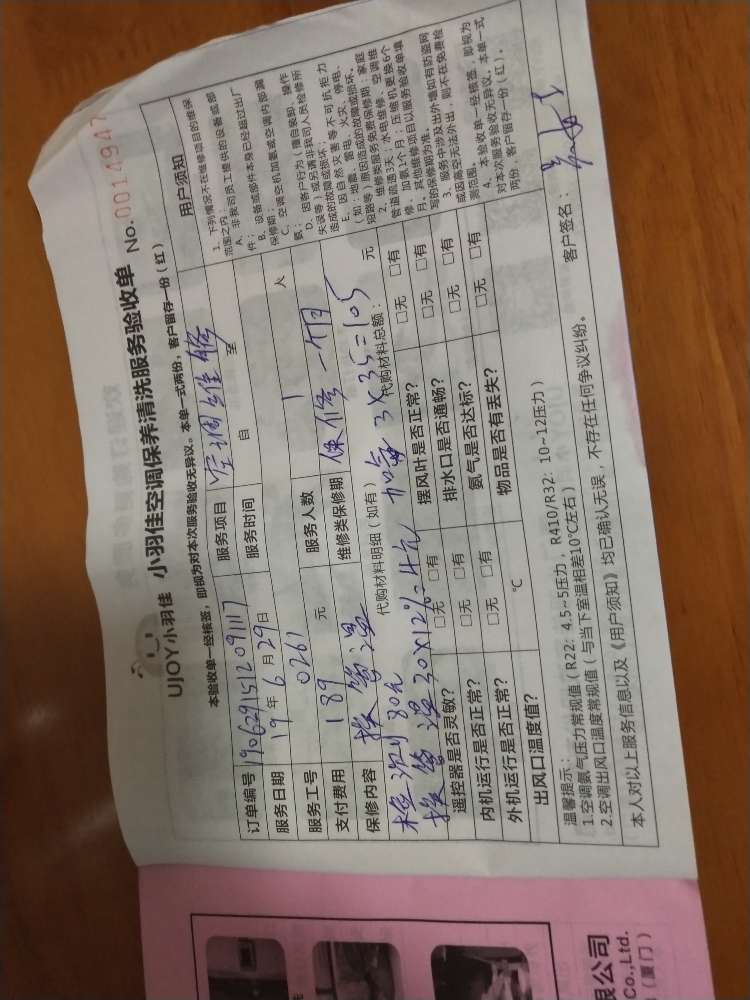 UJOY小羽佳 小羽佳空调保养清洗服务验收单 No:0014947
本验收单一经核签，即视为对本次服务验收无异议。本单一式两份，客户留存一份（红）
订单编号 190629151209117 服务项目 空调维修
服务日期 19年6月29日 服务时间 自 至
服务工号 0261 服务人数 1 人
支付费用 189 元 维修类保修期 保修一个月
保修内容 换管理 代购材料明细（如有） 代购材料总额： 元
检测80元 加氟 3×35=105
换管理30×12%=4元
遥控器是否灵敏？ □无 □有 摆风叶是否正常？ □无 □有
内机运行是否正常？ □无 □有 排水口是否通畅？ □无 □有
外机运行是否正常？ □无 □有 氨气是否达标？ □无 □有
出风口温度值？ ℃ 物品是否有丢失？ □无 □有
温馨提示：
1.空调氨气压力常规值（R22：4.5~5压力，R410/R32：10~12压力）
2.空调出风口温度常规值（与当下室温相差10℃左右）
本人对以上服务信息以及《用户须知》均已确认无误，不存在任何争议纠纷。 客户签名：
用户须知
1、下列情况不在维修项目的维保
范围之内：
A、非我司员工提供的设备或部
件；
B、设备或部件本身已经超过出厂
保修期；
C、空调空机加氨或空调内部漏
氨；
D、因客户行为（擅自装卸、操作
失误等）或另请非我司人员检修所
造成的故障或损坏；
E、因自然灾害等不可抗拒力
（如：地震、雷电、火灾、停电、
短路等）原因造成的故障或损坏。
2、维修类服务免费保修期：家庭
管道疏通3天；水电维修、空调维
修、加氨1个月；压缩机更换6个
月。其他维修项目以服务验收单填
写的保修期为准。
3、服务中涉及出外墙如有防盗网
或因高空无法外出，则不在免费检
测范围。
4、本验收单一经核签，即视为
对本次服务验收无异议。本单一式
两份，客户留存一份（红）。
限公司
Co.,Ltd.
（厦门）